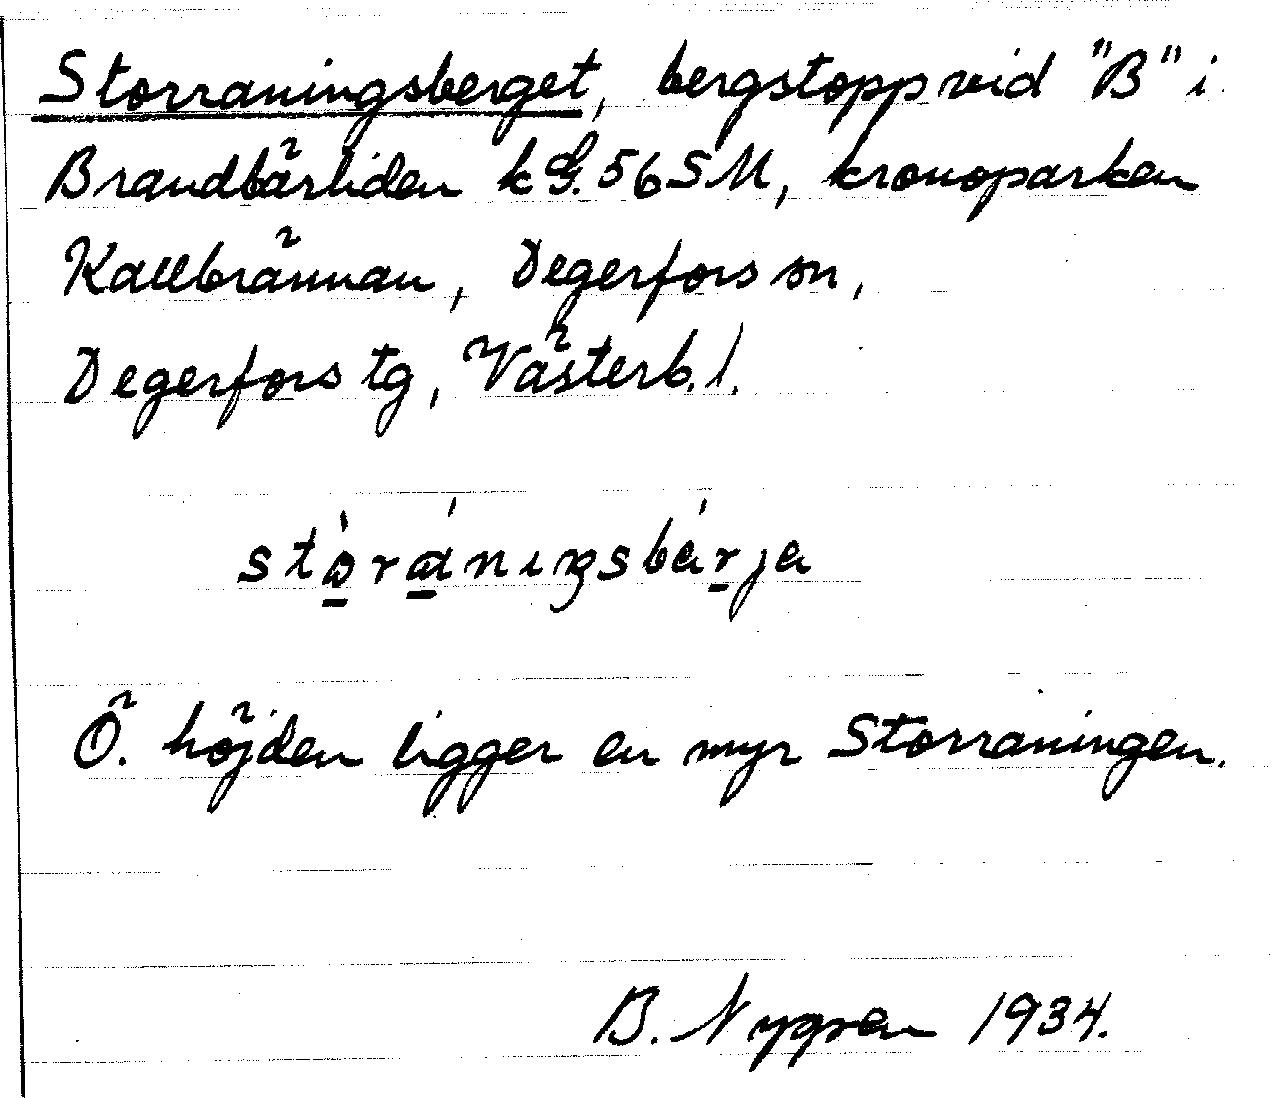 Storraningsberget, bergstopp vid "B" i
Brandbärliden kG. 56 SM, kronoparken
Kallbrännan, Degerfors sn,
Degerfors tg, Västerb. l.
stòránıŋsbárja
Ö. höjden ligger en myr Storraningen.
B. Nygren 1934.